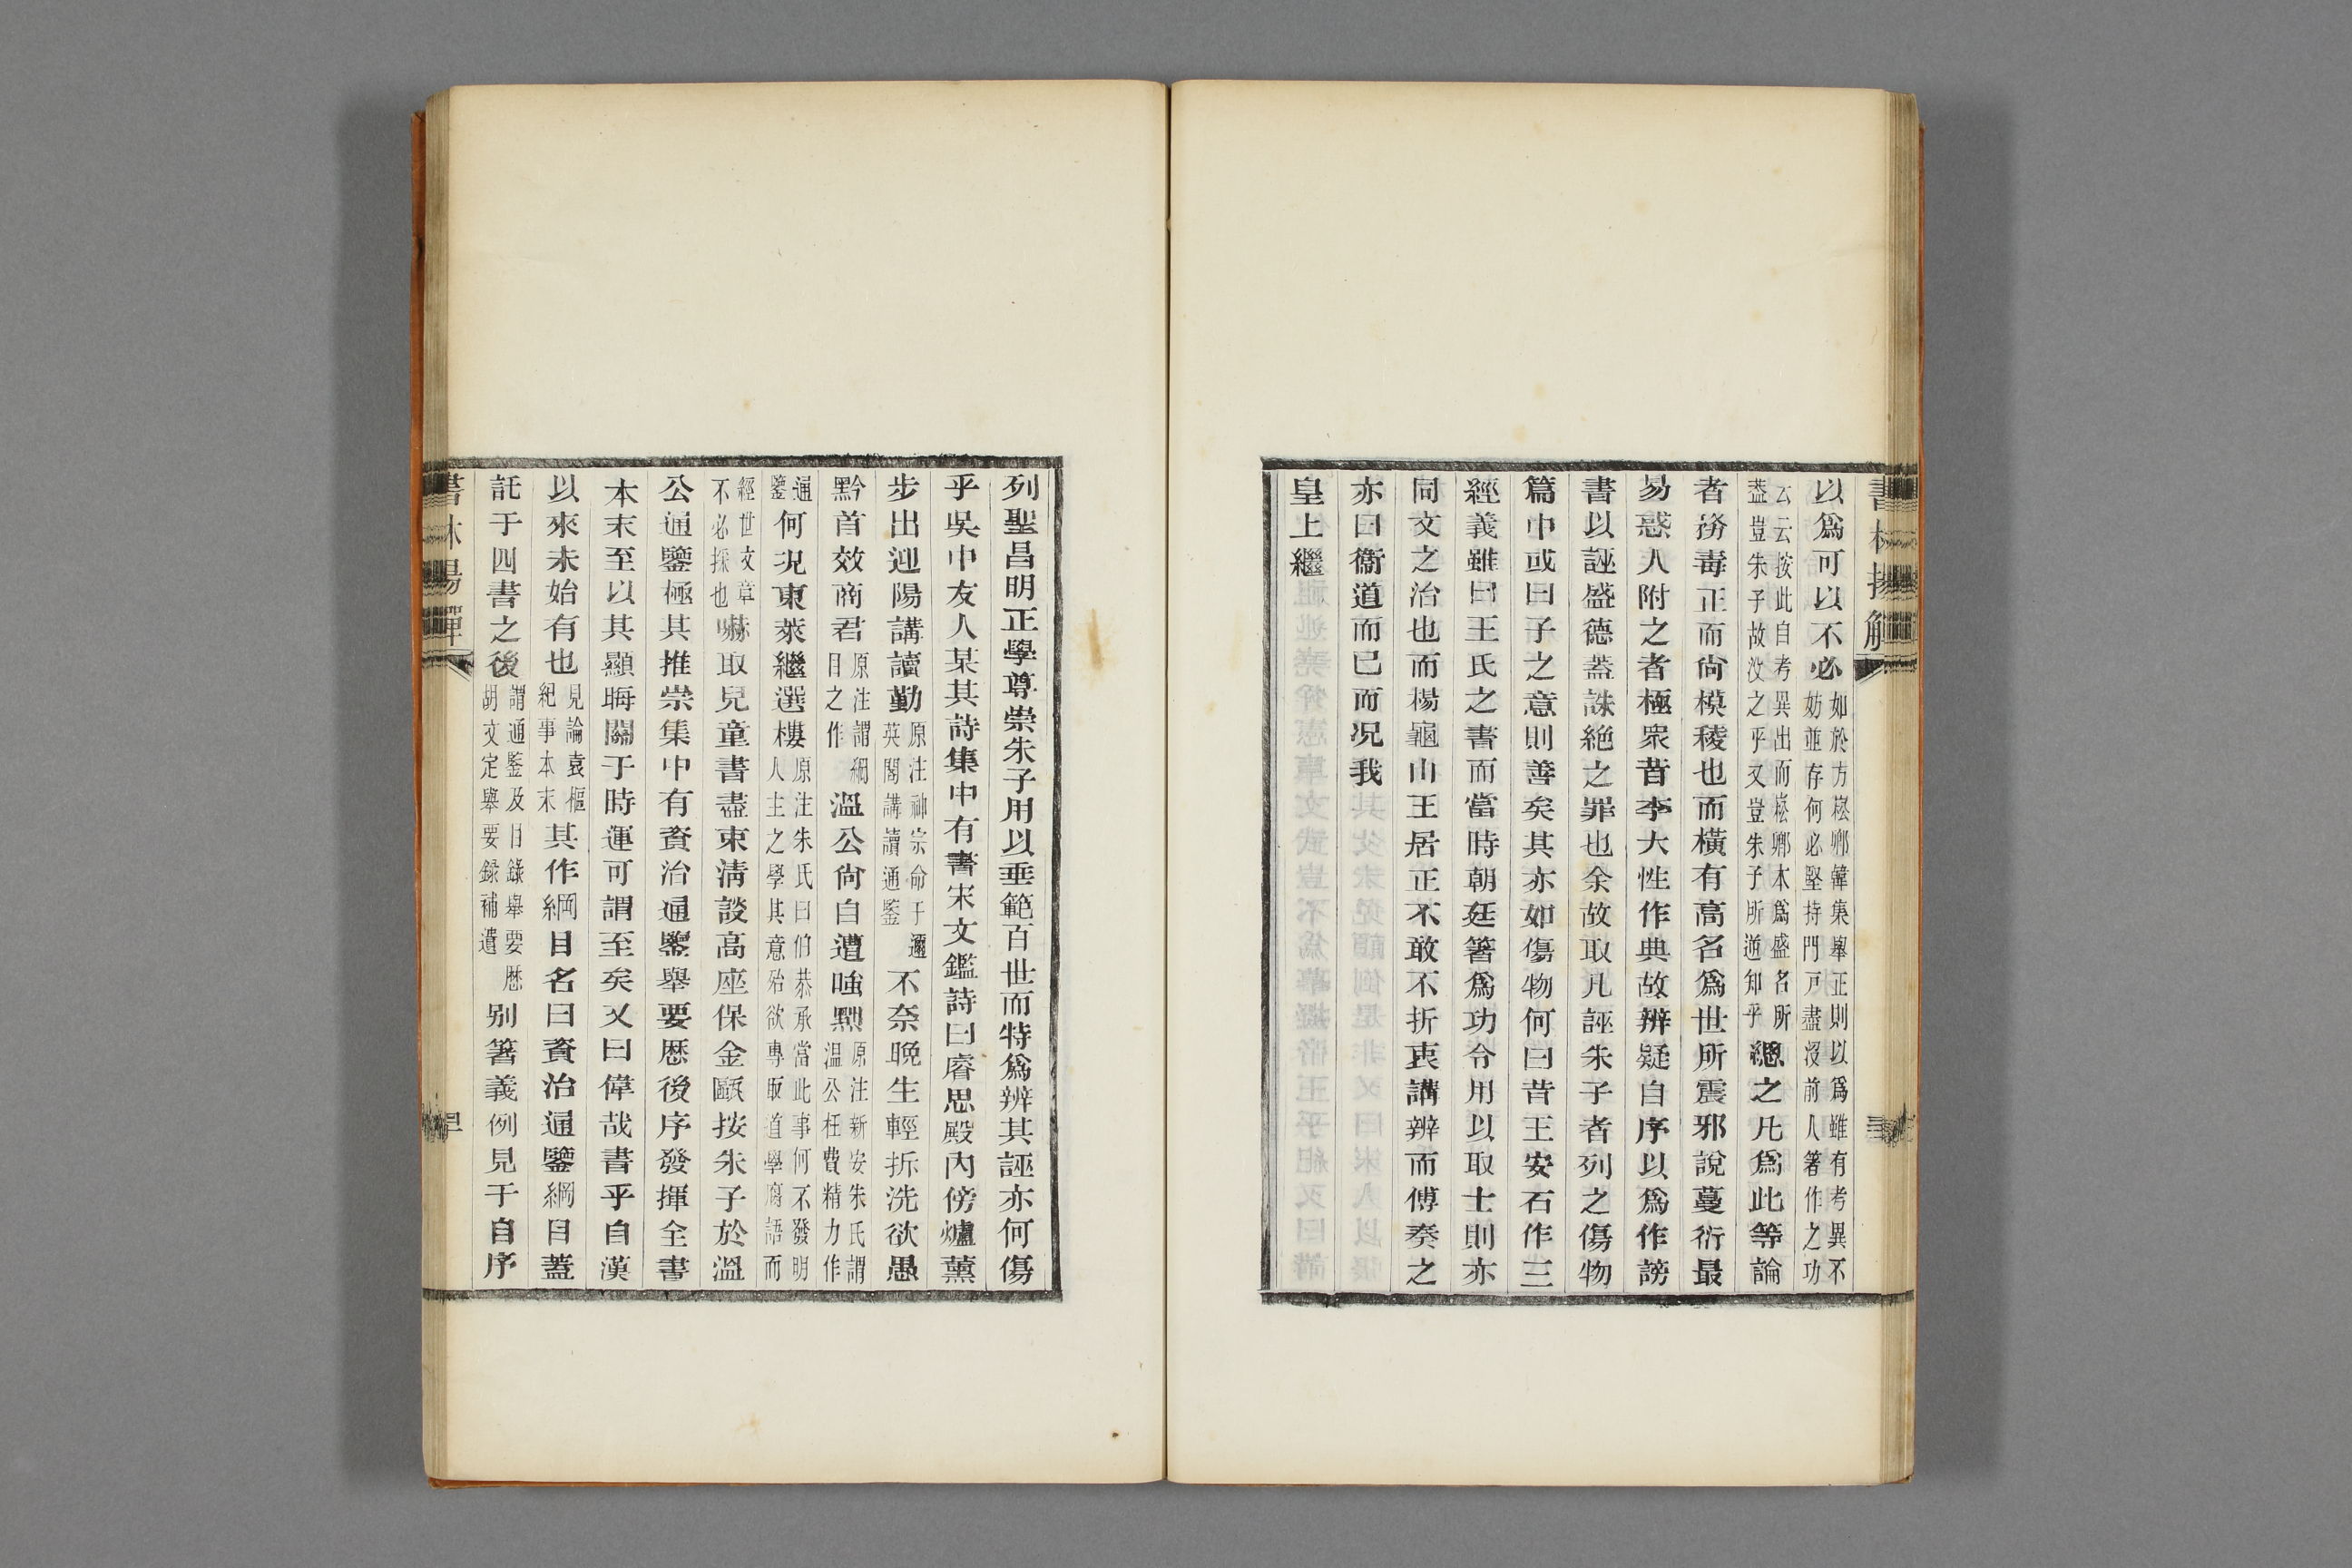 書林揚觶
以爲可以不必如於方崧卿韓集舉正則以爲雖有考異不妨並存何必堅持門戸盡沒前人箸作之功
云云按此自考異出而崧卿本爲盛名所葢豈朱子故沒之乎又豈朱子所逆知乎總之凡爲此等論
者務毒正而尙模稜也而橫有高名爲世所震邪說蔓衍最
易惑人附之者極衆昔李大性作典故辨疑自序以爲作謗
書以誣盛德葢誅絶之罪也余故取凡誣朱子者列之傷物
篇中或曰子之意則善矣其亦如傷物何曰昔王安石作三
經義雖曰王氏之書而當時朝廷箸爲功令用以取士則亦
同文之治也而楊龜山王居正不敢不折衷講辨而傅奏之
亦曰衞道而已而況我
皇上繼
列聖昌明正學尊崇朱子用以垂範百世而特爲辨其誣亦何傷
乎吳中友人某其詩集中有書宋文鑑詩曰睿思殿內傍爐薰
步出迎陽講讀勤原注神宗命于邇英閣講讀通鑒不奈晚生輕折洗欲愚
黔首效商君原注謂綱目之作溫公尙自遭嗤點原注新安朱氏謂温公枉費精力作
通鑒何況東萊繼選樓原注朱氏曰伯恭承當此事何不發明人主之學其意殆欲專販道學腐語而
經世文章不必採也嚇取兒童書盡東淸談高座保金甌按朱子於溫
公通鑒極其推崇集中有資治通鑒舉要歴後序發揮全書
本末至以其顯晦關于時運可謂至矣又曰偉哉書乎自漢
以來未始有也見論袁樞紀事本末其作綱目名曰資治通鑒綱目蓋
託于四書之後謂通鑒及目錄舉要歴胡文定舉要錄補遺别箸義例見于自序
書林揚觶